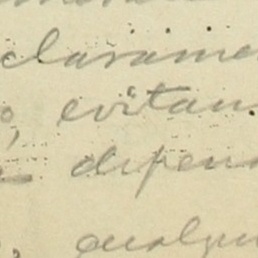 clarame
evitan
depen
qualqu